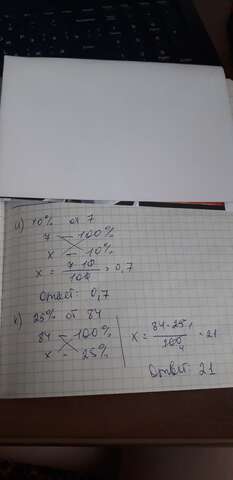 и) 10% от 7
7 — 100%
х — 10%
х = 7·10 / 100 = 0,7
Ответ 0,7
к) 25% от 84
84 — 100%
х - 25%
х = 84·25 1 / 100 4 = 21
Ответ 21